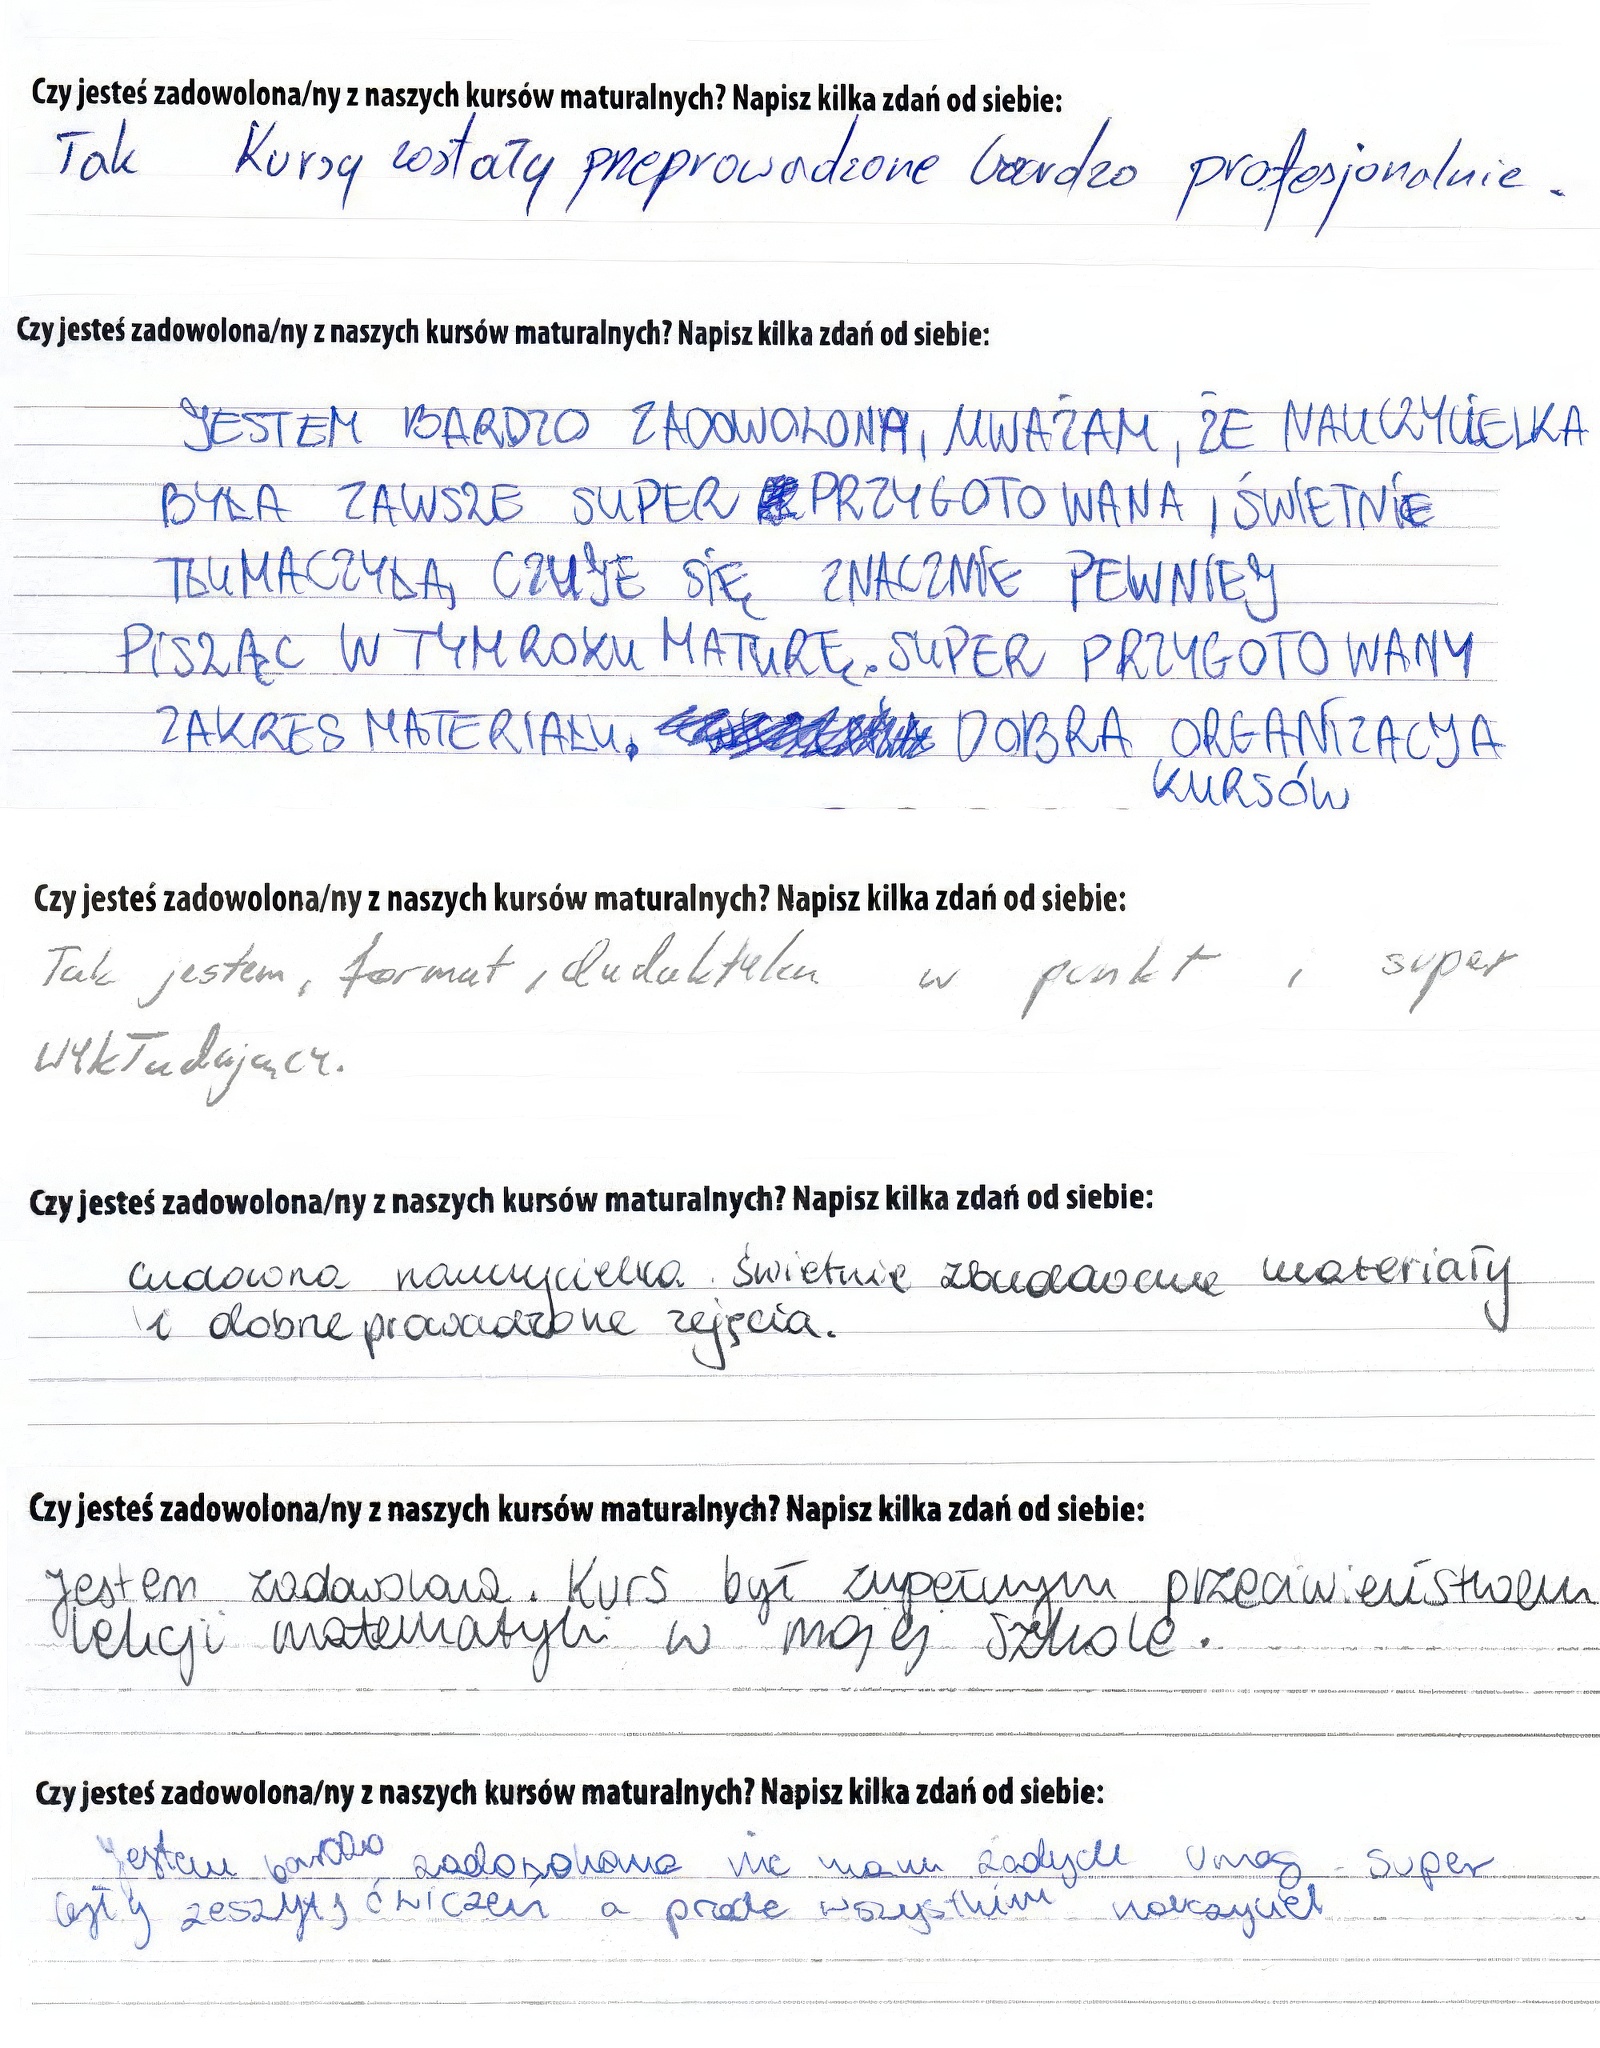 Czy jesteś zadowolona/ny z naszych kursów maturalnych? Napisz kilka zdań od siebie:
Tak Kursy zostały przeprowadzone bardzo profesjonalnie.
Czy jesteś zadowolona/ny z naszych kursów maturalnych? Napisz kilka zdań od siebie:
JESTEM BARDZO ZADOWOLONA, UWAŻAM, ŻE NAUCZYCIELKA
BYŁA ZAWSZE SUPER PRZYGOTOWANA, ŚWIETNIE
TŁUMACZYŁA, CZUJE SIĘ ZNACZNIE PEWNIEJ
PISZĄC W TYM ROKU MATURĘ. SUPER PRZYGOTOWANY
ZAKRES MATERIAŁU. DOBRA ORGANIZACJA
KURSÓW
Czy jesteś zadowolona/ny z naszych kursów maturalnych? Napisz kilka zdań od siebie:
Tak jestem, format, dydaktyka w punkt i super
wykładający.
Czy jesteś zadowolona/ny z naszych kursów maturalnych? Napisz kilka zdań od siebie:
cudowna nauczycielka. świetnie zbudowane materiały
i dobrze prowadzone zajęcia.
Czy jesteś zadowolona/ny z naszych kursów maturalnych? Napisz kilka zdań od siebie:
Jestem zadowolona. Kurs był zupełnym przeciwieństwem
lekcji matematyki w mojej szkole.
Czy jesteś zadowolona/ny z naszych kursów maturalnych? Napisz kilka zdań od siebie:
Jestem bardzo zadowolona nie mam żadych uwag super
były zeszyty ćwiczeń a przede wszystkim